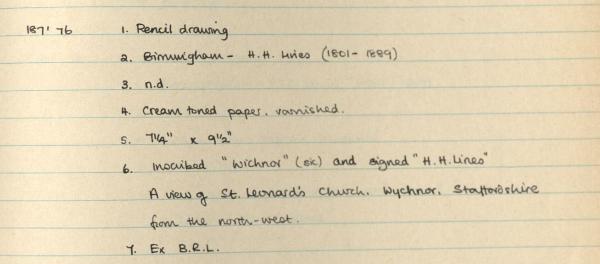 187'76 1. Pencil drawing
2. Birmingham - H.H. Lines (1801 - 1889)
3. n.d.
4. Cream toned paper, varnished.
5. 7¼" x 9½"
6. Inscribed "Wichnor" (sic) and signed "H.H. Lines"
A view of St. Leonard's Church, Wychnor, Staffordshire
from the north-west.
7. Ex B.R.L.